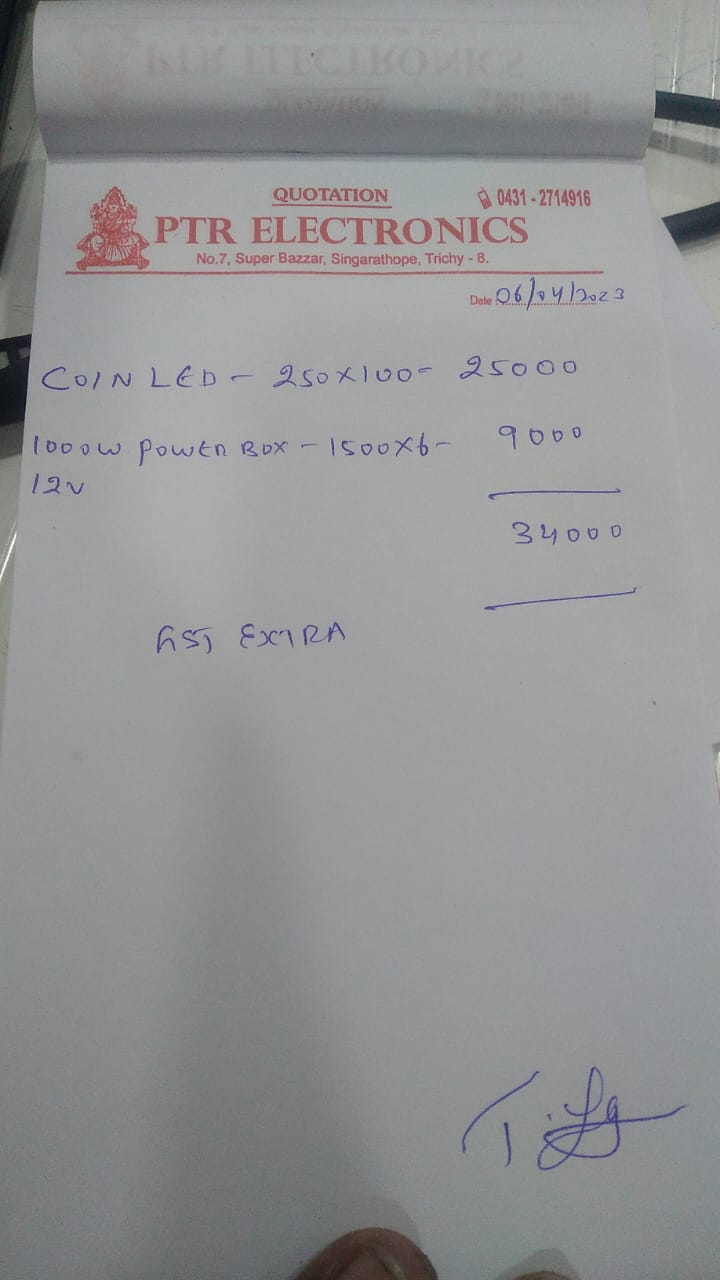 QUOTATION
0431 - 2714916
PTR ELECTRONICS
No.7, Super Bazzar, Singarathope, Trichy - 8.
Date 06/04/2023
COIN LED - 250X100= 25000
1000W POWER BOX - 1500X6- 9000
12V
34000
GST EXTRA